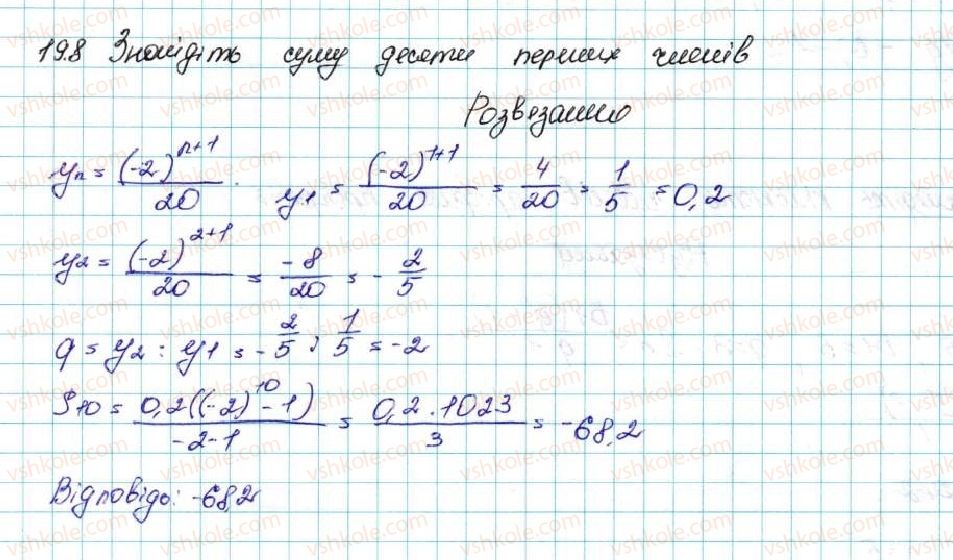 19.8 Знайдіть суму десяти перших членів
Розвезанно
yn = (-2)^n+1 / 20. y1 = (-2)^1+1 / 20 = 4/20 = 1/5 = 0,2
y2 = (-2)^2+1 / 20 = -8/20 = -2/5
q = y2 : y1 = -2/5 : 1/5 = -2
S10 = 0,2((-2)^10 - 1) / -2-1 = 0,2 . 1023 / 3 = -68,2
Відповідь: -68,2